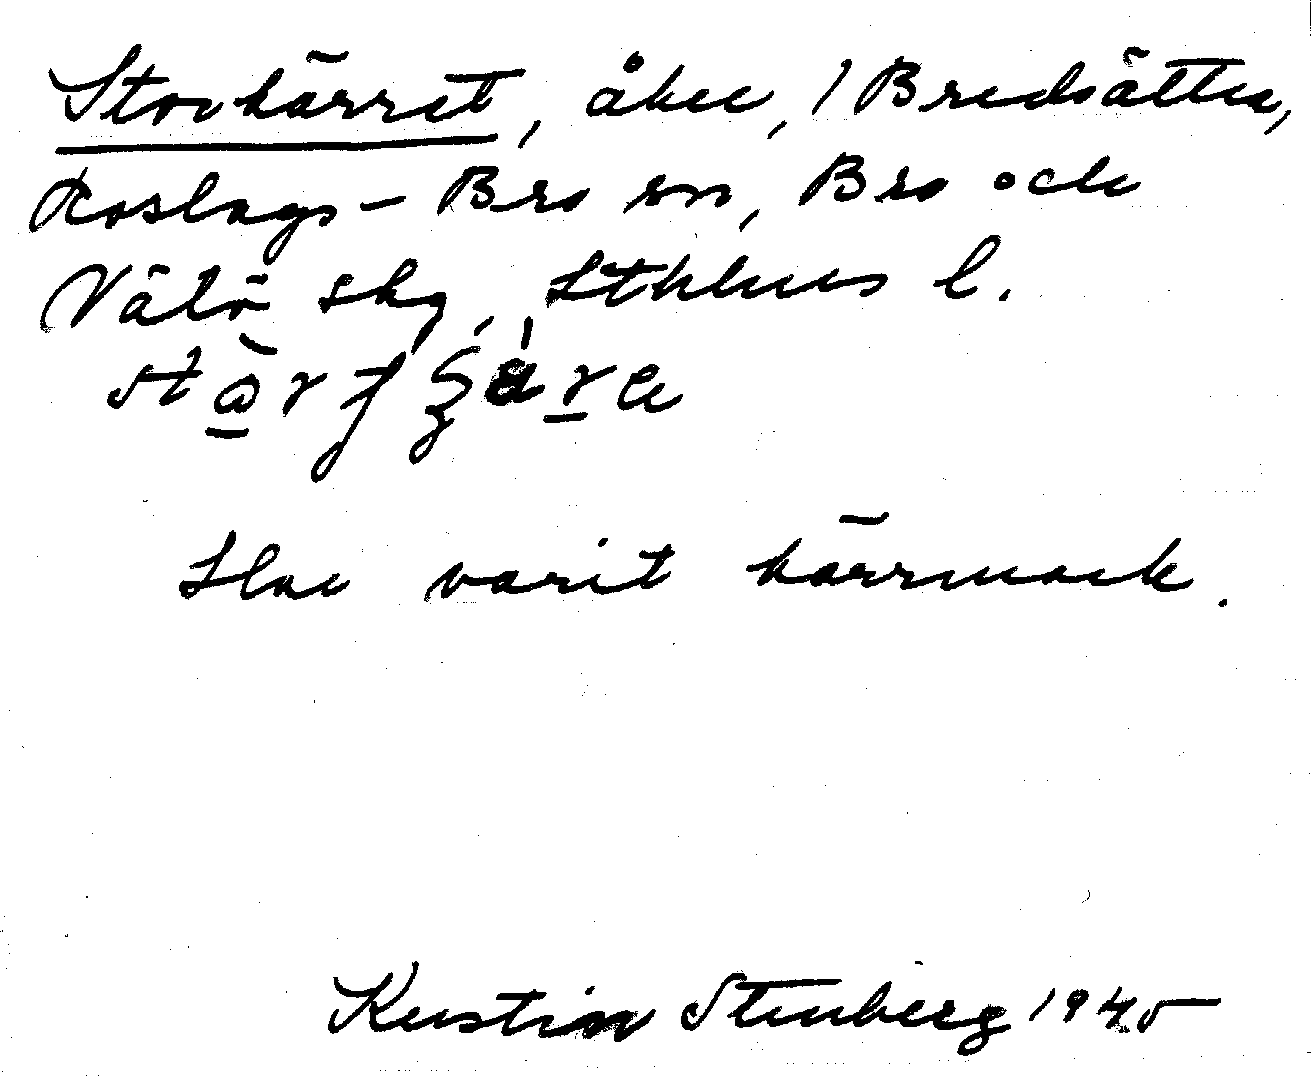 Storkärret, åker, 1 Bredsätra,
Roslags-Bro sn, Bro och
Vätö skg, Sthlms l.
Har varit kärrmark.
Kerstin Stenberg 1945